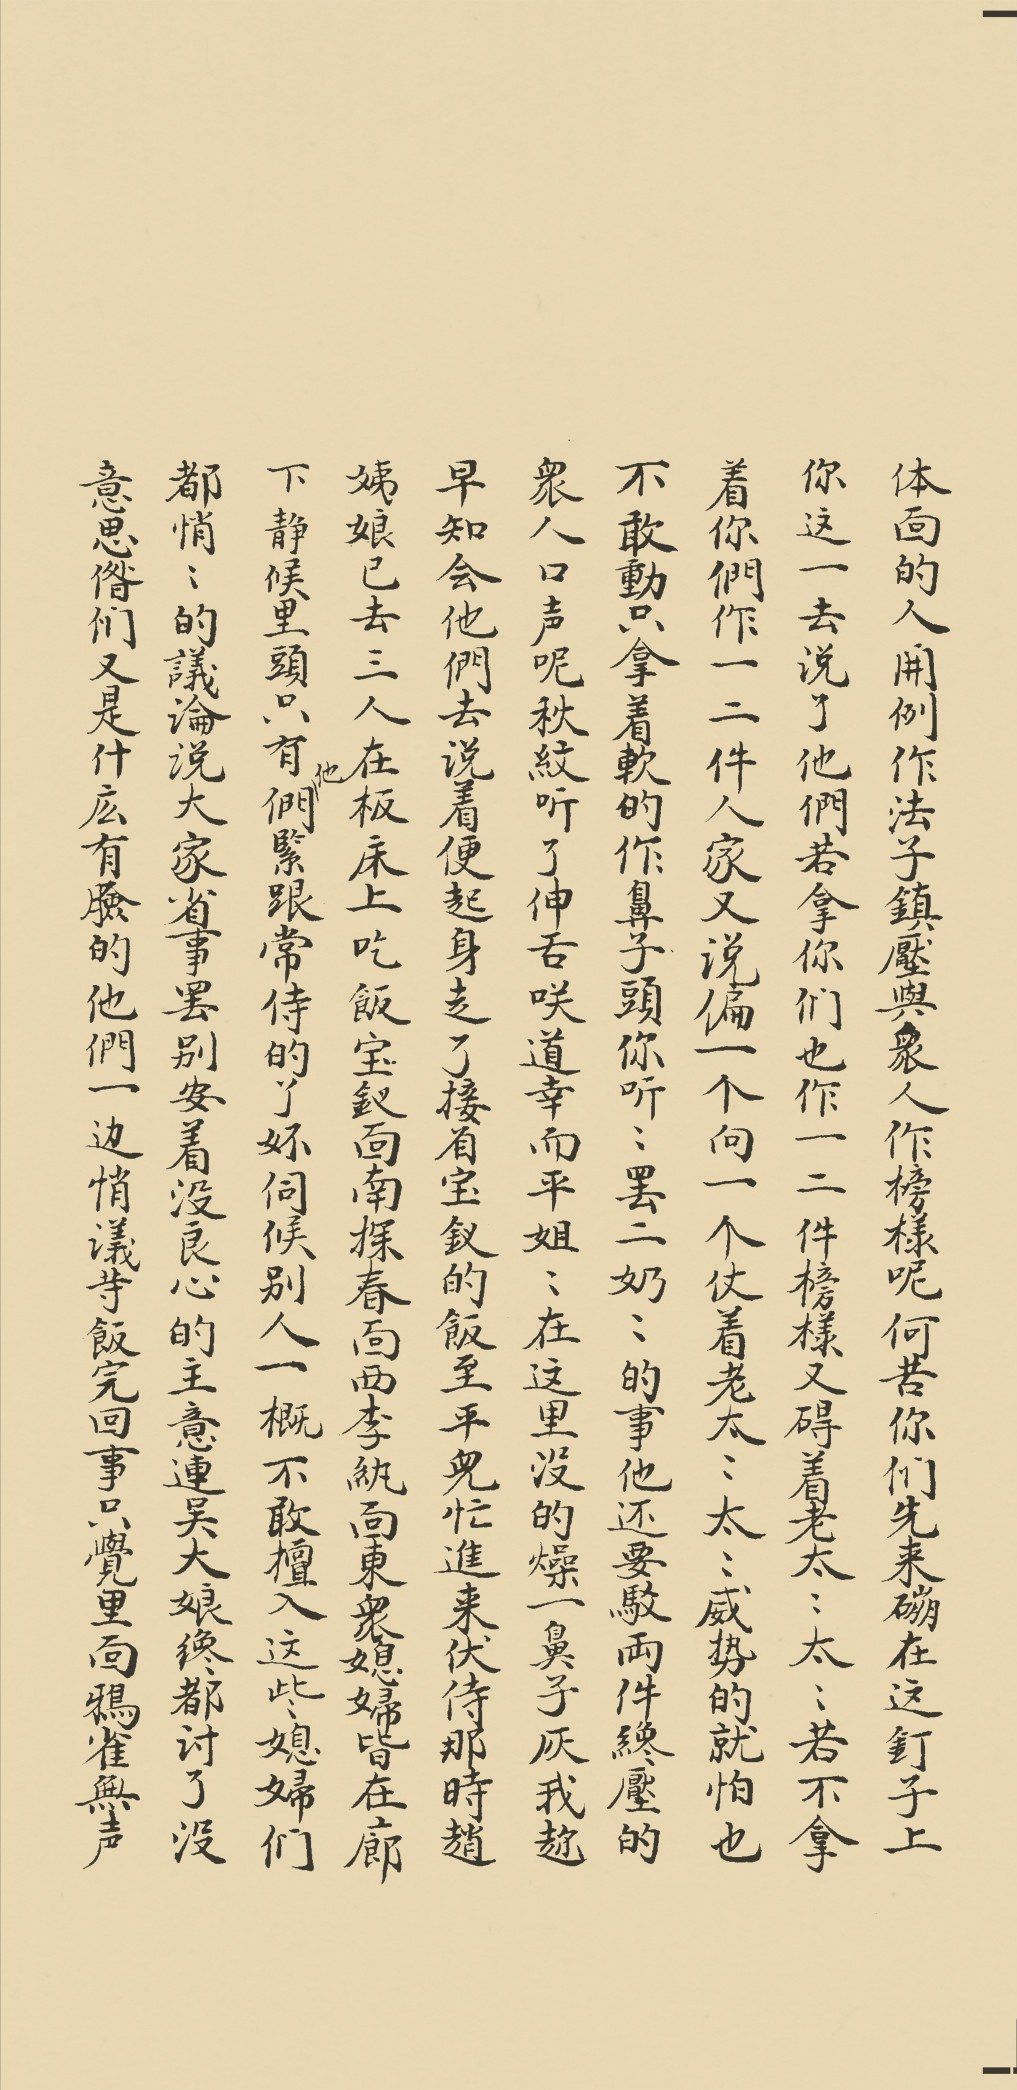 体面的人開例作法子鎮壓與衆人作榜樣呢何苦你们先来磞在这釘子上
你这一去说了他們若拿你们也作一二件榜樣又碍着老太〻太〻若不拿
着你們作一二件人家又说偏一个向一个仗着老太〻太〻威势的就怕也
不敢動只拿着軟的作鼻子頭你听〻罢二奶〻的事他还要駁両件纔壓的
衆人口声呢秋紋听了伸舌咲道幸而平姐〻在这里没的燥一鼻子灰我趂
早知会他們去说着便起身走了接着宝釵的飯至平兒忙進来伏侍那時趙
姨娘已去三人在板床上吃飯宝釵面南探春面西李紈面東衆媳婦皆在廊
下静候里頭只有他們緊跟常侍的丫妳伺候别人一概不敢擅入这些媳婦们
都悄〻的議論说大家省事罢别安着没良心的主意連吴大娘纔都討了没
意思偺们又是什広有臉的他們一边悄議等飯完回事只覺里面鴉雀無声